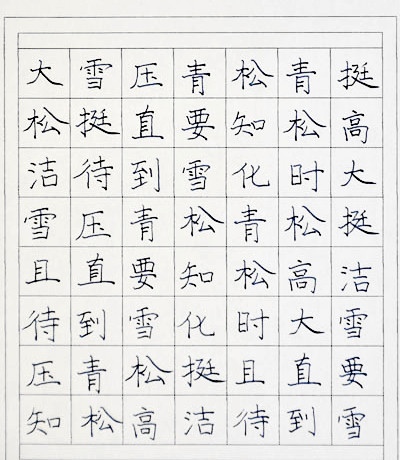 大雪压青松青挺
松挺直要知松高
洁待到雪化时大
雪压青松青松挺
且直要知松高洁
待到雪化时大雪
压青松挺且直要
知松高洁待到雪